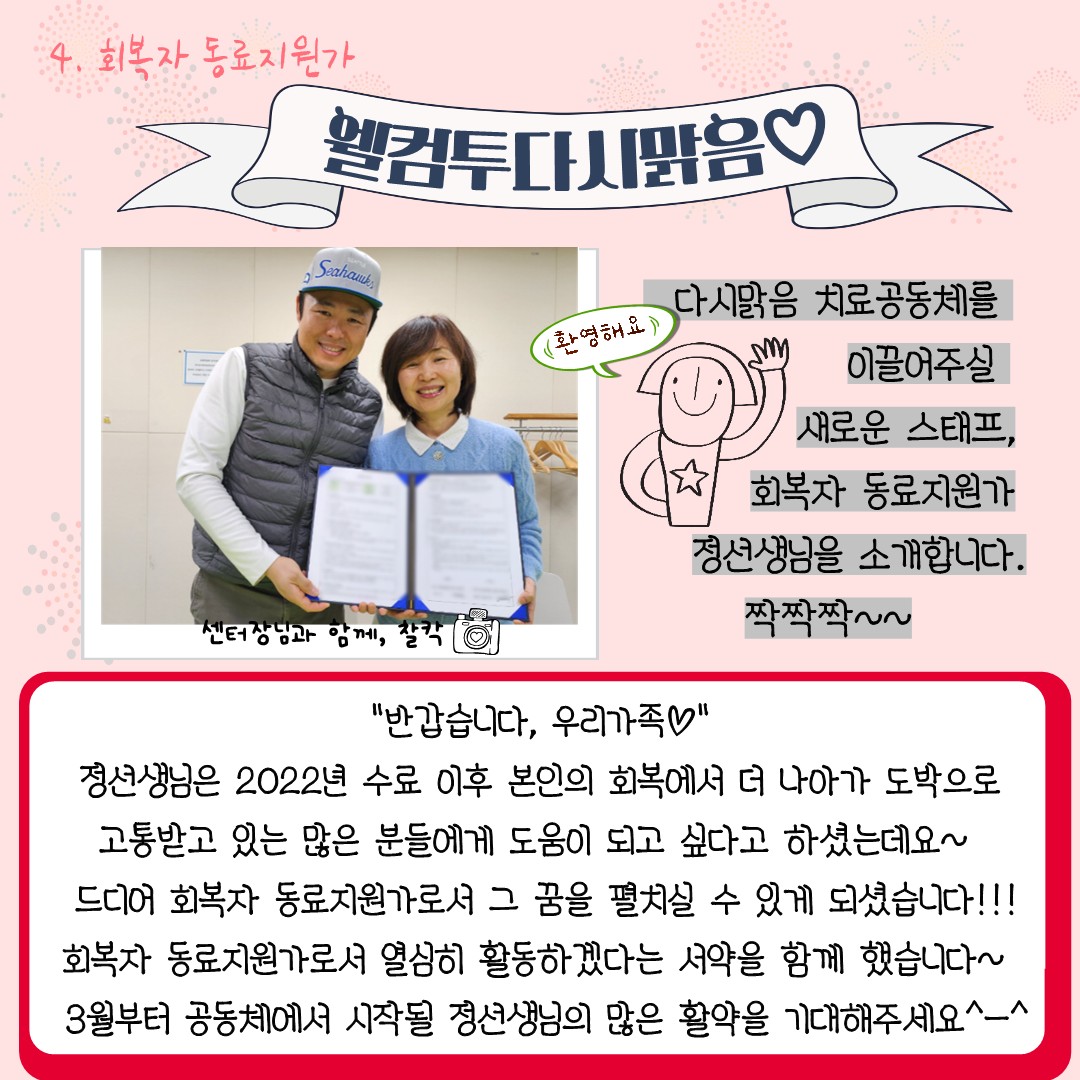 4. 회복자 동료지원가
웰컴투다시맑음♡
Seahawks
환영해요
다시맑음 치료공동체를
이끌어주실
새로운 스태프,
회복자 동료지원가
정선생님을 소개합니다.
짝짝짝~~
센터장님과 함께, 찰칵
"반갑습니다, 우리가족♡"
정선생님은 2022년 수료 이후 본인의 회복에서 더 나아가 도박으로
고통받고 있는 많은 분들에게 도움이 되고 싶다고 하셨는데요~
드디어 회복자 동료지원가로서 그 꿈을 펼치실 수 있게 되셨습니다!!!
회복자 동료지원가로서 열심히 활동하겠다는 서약을 함께 했습니다~
3월부터 공동체에서 시작될 정선생님의 많은 활약을 기대해주세요^-^